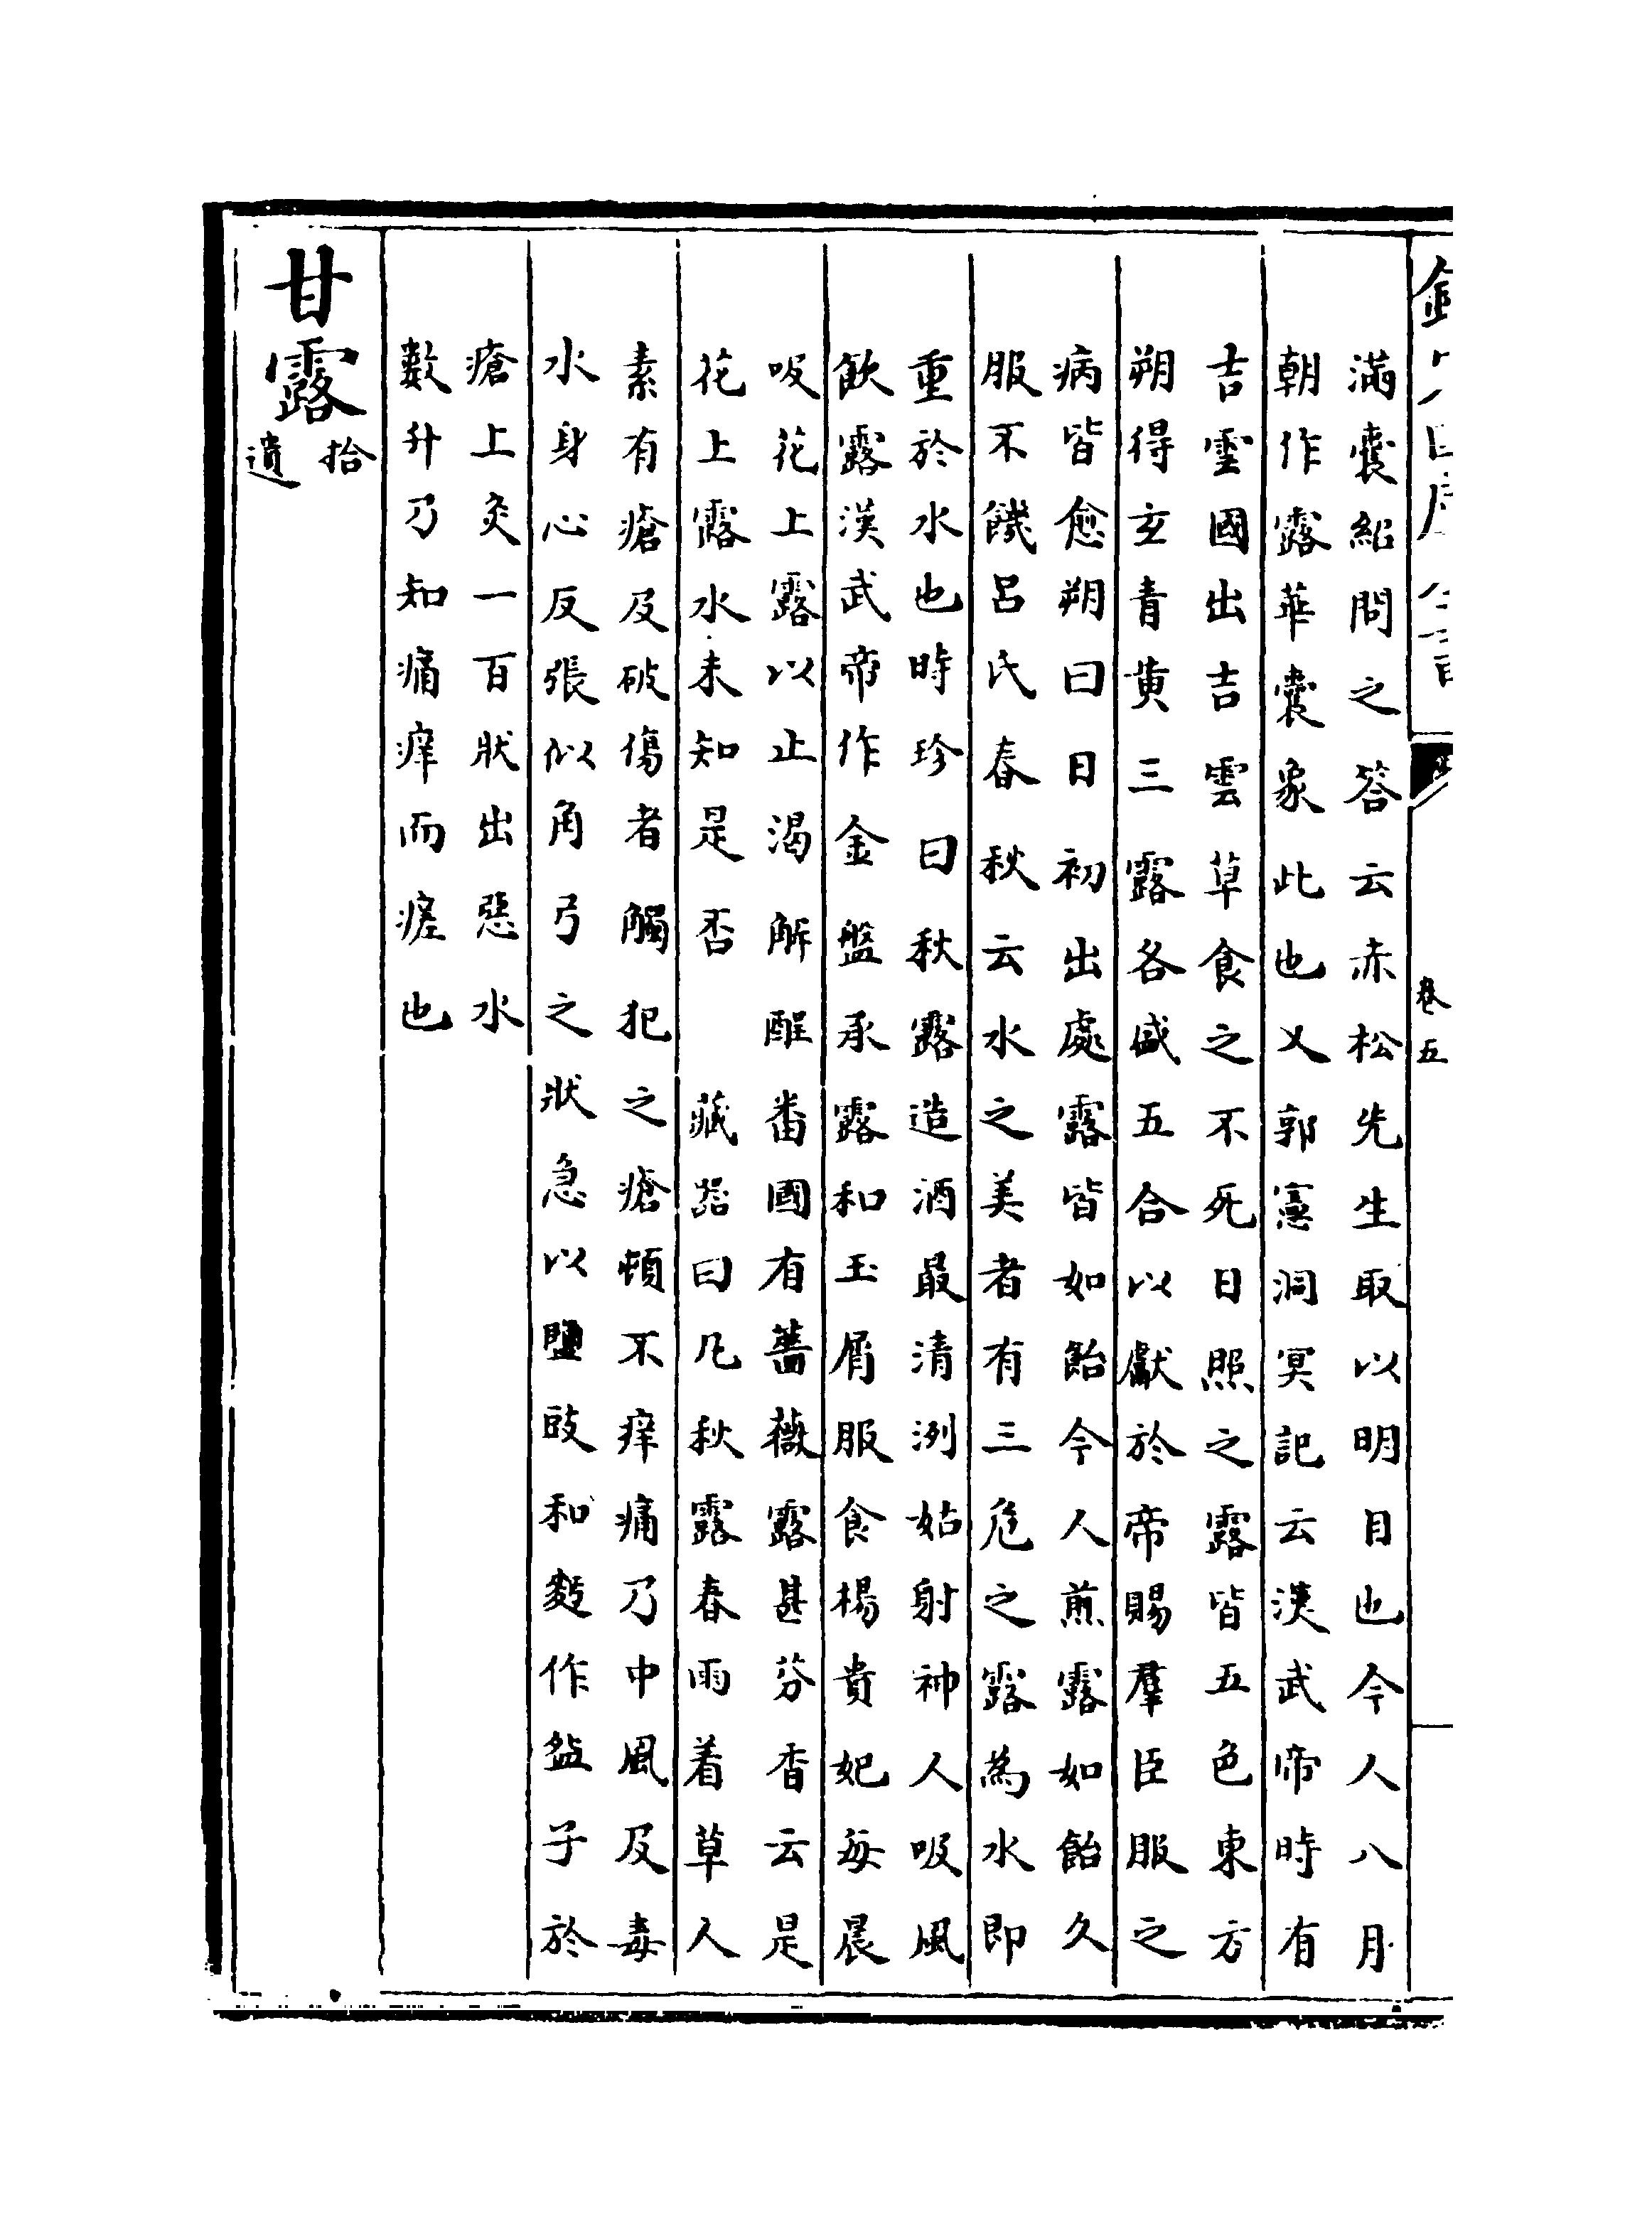 滿囊紹問之答云赤松先生取以明目也今人八月
朝作露華囊象此也又郭憲洞冥記云漢武帝時有
吉雲國出吉雲草食之不死日照之露皆五色東方
朔得玄青黄三露各盛五合以獻於帝賜羣臣服之
病皆愈朔曰日初出處露皆如飴今人煎露如飴久
服不饑吕氏春秋云水之美者有三危之露為水即
重於水也時珍曰秋露造酒最清洌姑射神人吸風
飲露漢武帝作金盤承露和玉屑服食楊貴妃每晨
吸花上露以止渴解酲番國有薔薇露甚芬香云是
花上露水未知是否　藏器曰凡秋露春雨着草人
素有瘡及破傷者觸犯之瘡頓不痒痛乃中風及毒
水身心反張似角弓之狀急以鹽豉和麫作盌子於
瘡上灸一百狀出惡水
數升乃知痛痒而瘥也
甘露拾遺
卷五